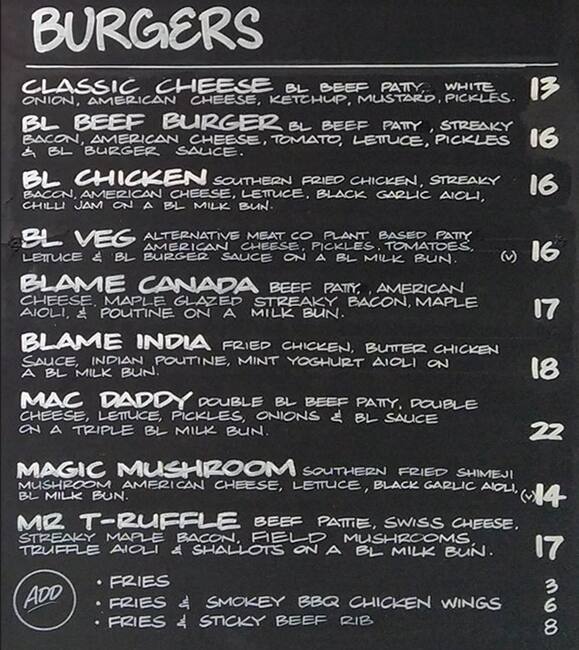 BURGERS
CLASSIC CHEESE BL BEEF PATTY, WHITE 13
ONION, AMERICAN CHEESE, KETCHUP, MUSTARD, PICKLES.
BL BEEF BURGER BL BEEF PATTY, STREAKY
BACON, AMERICAN CHEESE, TOMATO, LETTUCE, PICKLES 16
& BL BURGER SAUCE.
BL CHICKEN SOUTHERN FRIED CHICKEN, STREAKY 16
BACON, AMERICAN CHEESE, LETTUCE, BLACK GARLIC AIOLI,
CHILLI JAM ON A BL MILK BUN.
BL VEG ALTERNATIVE MEAT CO PLANT BASED PATTY
AMERICAN CHEESE, PICKLES, TOMATOES,
LETTUCE & BL BURGER SAUCE ON A BL MILK BUN. (V) 16
BLAME CANADA BEEF PATTY, AMERICAN
CHEESE, MAPLE GLAZED STREAKY BACON, MAPLE
AIOLI, & POUTINE ON A MILK BUN. 17
BLAME INDIA FRIED CHICKEN, BUTTER CHICKEN
SAUCE, INDIAN POUTINE, MINT YOGHURT AIOLI ON
A BL MILK BUN. 18
MAC DADDY DOUBLE BL BEEF PATTY, DOUBLE
CHEESE, LETTUCE, PICKLES, ONIONS & BL SAUCE
ON A TRIPLE BL MILK BUN. 22
MAGIC MUSHROOM SOUTHERN FRIED SHIMEJI
MUSHROOM AMERICAN CHEESE, LETTUCE, BLACK GARLIC AIOLI,
BL MILK BUN. (V) 14
MR T-RUFFLE BEEF PATTIE, SWISS CHEESE,
STREAKY MAPLE BACON, FIELD MUSHROOMS,
TRUFFLE AIOLI & SHALLOTS ON A BL MILK BUN. 17
ADD
• FRIES 3
• FRIES & SMOKEY BBQ CHICKEN WINGS 6
• FRIES & STICKY BEEF RIB 8